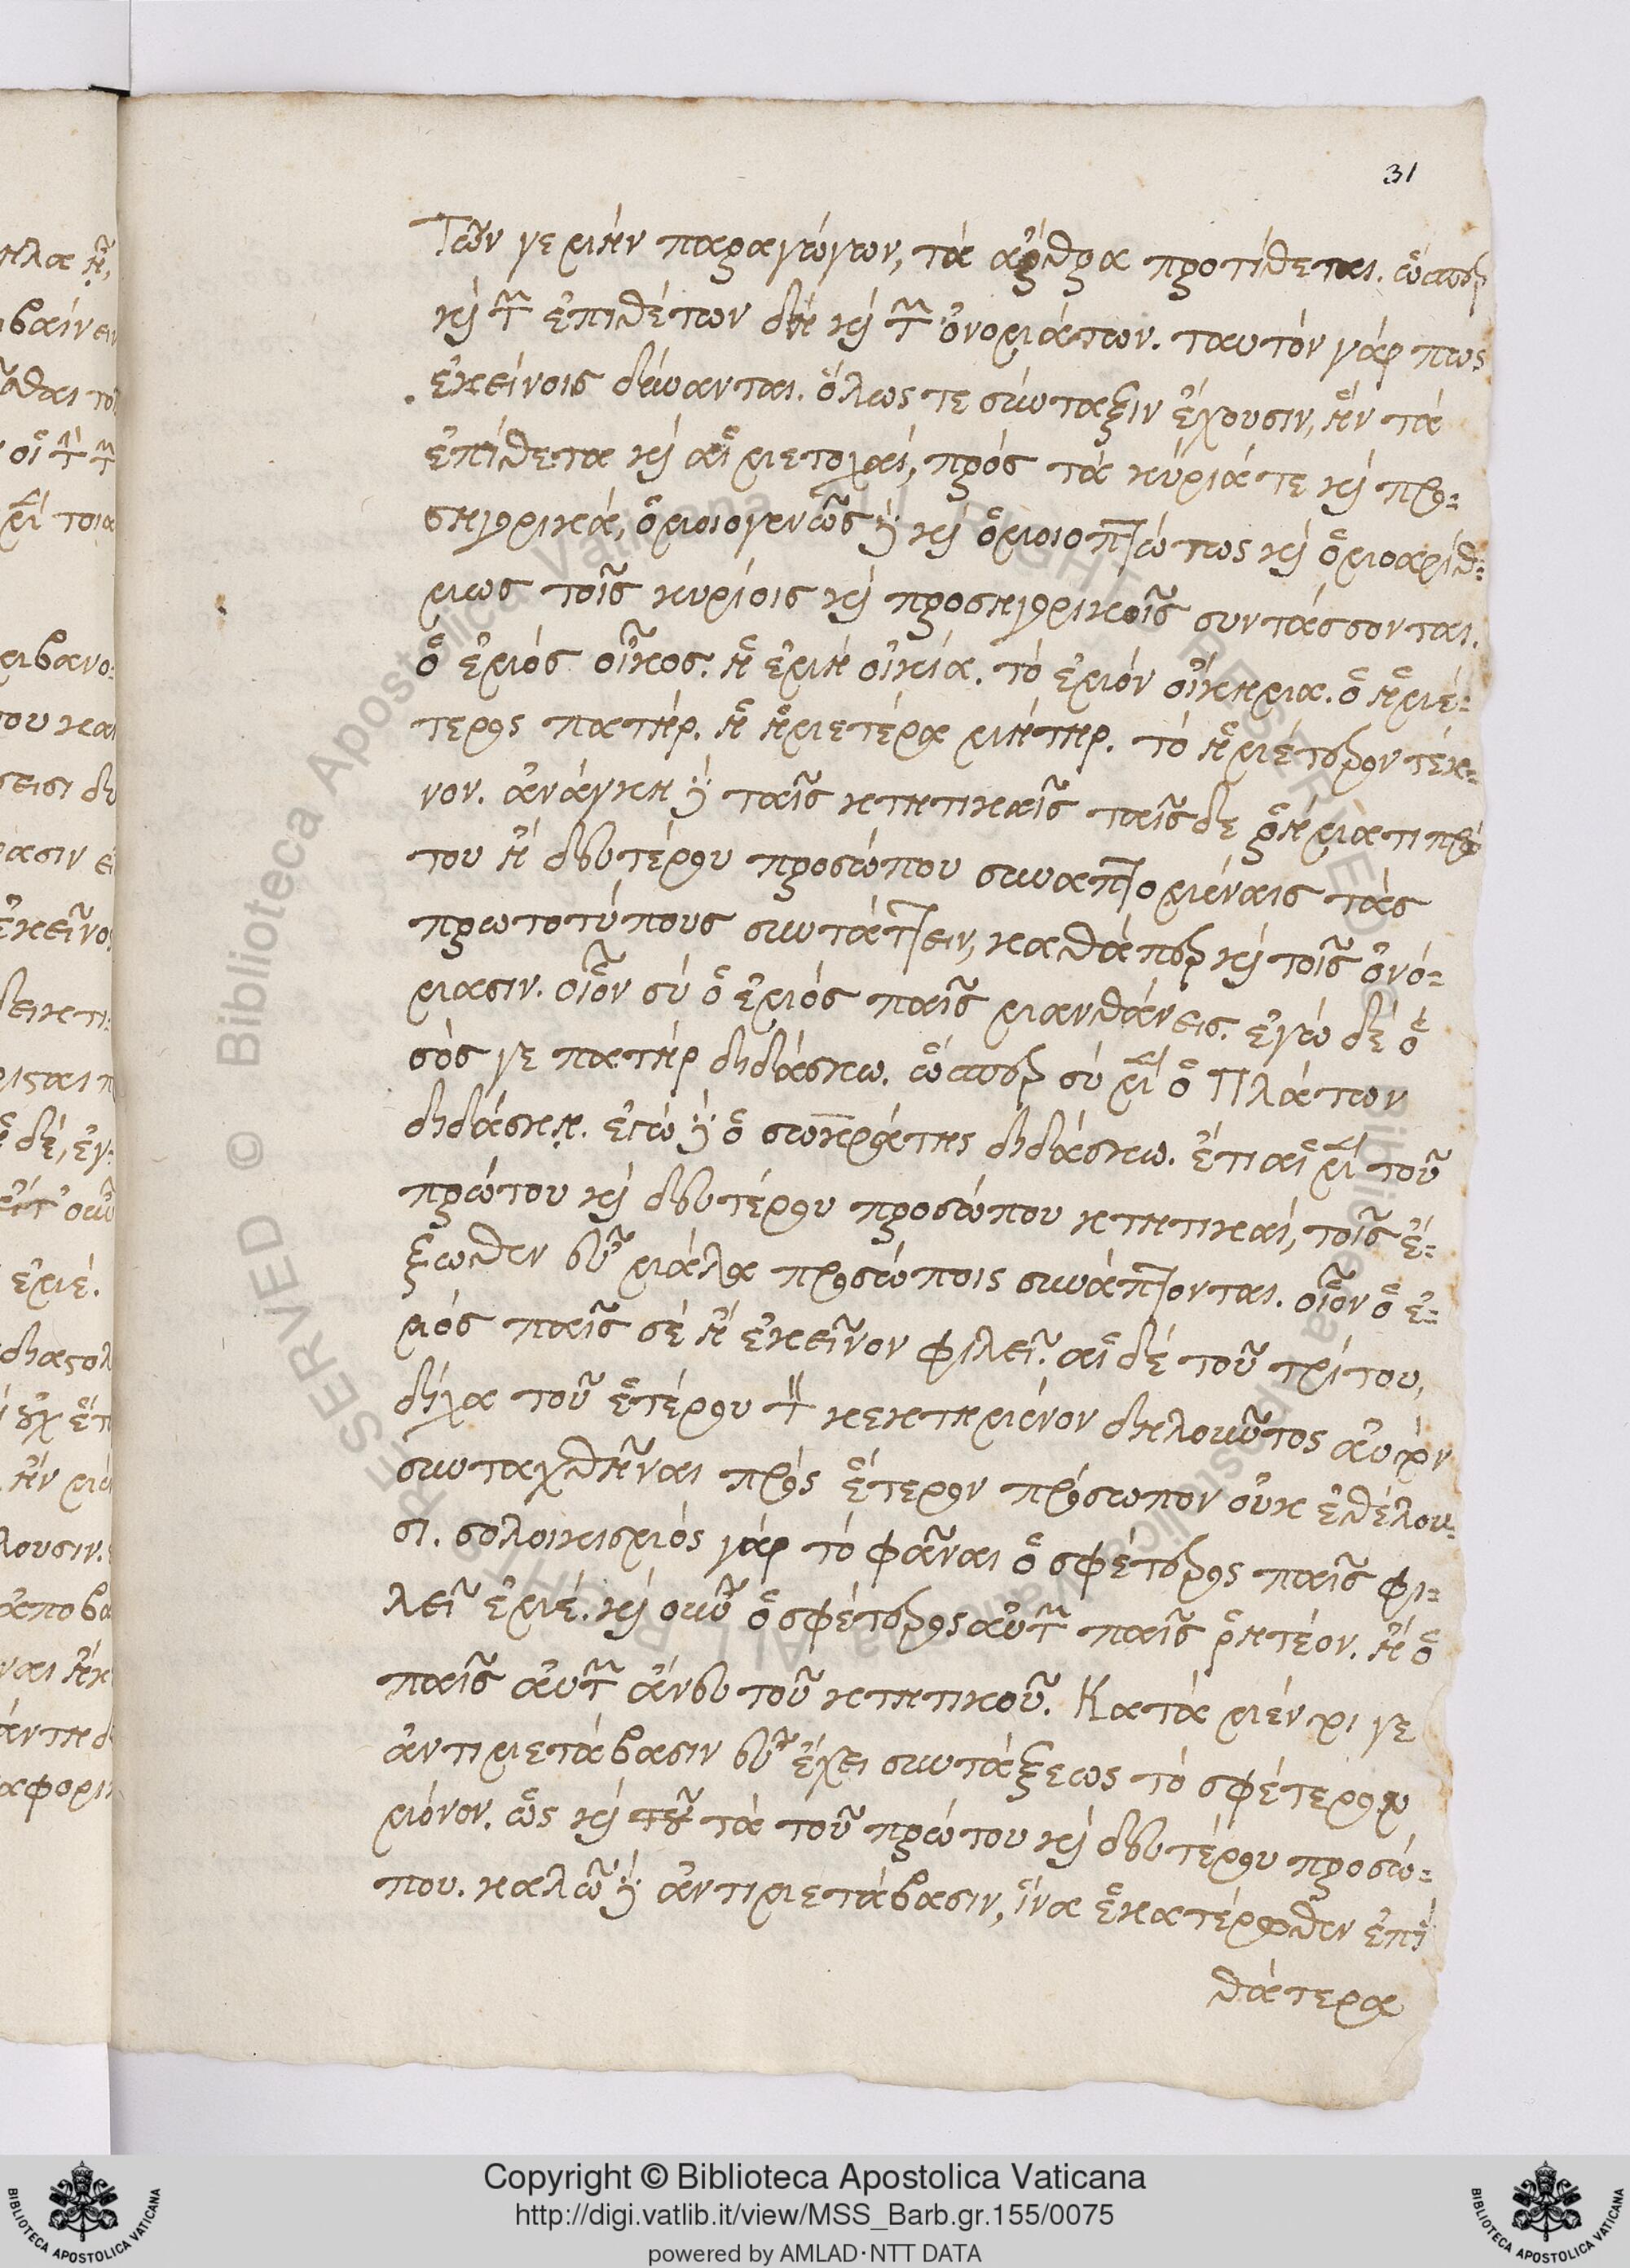 31
Τῶν γε μὴν παραγώγων, τὰ ἄρθρα προτίθεται. ὥσπερ
καὶ τῶν ἐπιθέτων δὴ καὶ τῶν ὀνομάτων. ταυτὸν γάρ πως
ἐκείνοις δύνανται. ὅλως τε σύνταξιν ἔχουσιν, ἣν τὰ
ἐπίθετα καὶ αἱ μετοχαί, πρὸς τὰ κύριά τε καὶ προ-
σηγορικά, ὁμοιογενῶς δὲ καὶ ὁμοιοπτώτως καὶ ὁμοαρίθ-
μως τοῖς κυρίοις καὶ προσηγορικοῖς συντάσσονται.
ὁ ἐμὸς οἶκος. ἡ ἐμὴ οἰκία. τὸ ἐμὸν οἴκημα. ὁ ἡμέ-
τερος πατήρ. ἡ ἡμετέρα μήτηρ. τὸ ἡμέτερον τέκ-
νον. ἀνάγκη δὲ ταῖς κτητικαῖς ταῖσδε ῥήματι πρώ
του ἢ δευτέρου προσώπου συναπτομέναις τὰς
πρωτοτύπους συντάττειν, καθάπερ καὶ τοῖς ὀνό-
μασιν. οἷον σὺ ὁ ἐμὸς παῖς μανθάνεις. ἐγὼ δὲ ὁ
σός γε πατὴρ διδάσκω. ὥσπερ σὺ μὲν ὁ Πλάτων
διδάσκῃ. ἐγὼ δὲ ὁ σωκράτης διδάσκω. ἔτι αἱ μὲν τοῦ
πρώτου καὶ δευτέρου προσώπου κτητικαί, τοῖς ἔ-
ξωθεν εὖ μάλα προσώποις συνάπτονται. οἷον ὁ ἐ-
μὸς παῖς σὲ ἢ ἐκεῖνον φιλεῖ. αἱ δὲ τοῦ τρίτου,
δίχα τοῦ ἑτέρου τὸν κεκτημένον δηλοῦντος
συνταχθῆναι πρὸς ἕτερον πρόσωπον οὐκ ἐθέλου-
σι. σολοικισμὸς γὰρ τὸ φᾶναι ὁ σφέτερος παῖς φι-
λεῖ ἐμέ. καὶ οὖν ὁ σφέτερος αὐτῶν παῖς ῥητέον. ἢ ὁ
παῖς αὐτῶν ἄνευ τοῦ κτητικοῦ. Κατὰ μέν τοι γε
ἀντιμετάβασιν εὖ ἔχει συντάξεως τὸ σφέτερον
μόνον. ὡς καὶ τὰ τοῦ πρώτου καὶ δευτέρου προσώ-
που. καλῶ δὲ ἀντιμετάβασιν, ἵνα ἑκατέρωθεν ἐπὶ
θάτερα
Copyright © Biblioteca Apostolica Vaticana
http://digi.vatlib.it/view/MSS_Barb.gr.155/0075
powered by AMLAD·NTT DATA